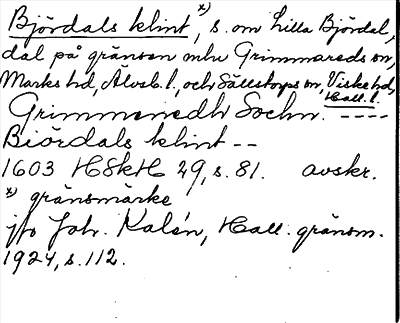 Björdals klint x), s. om Lilla Björdal,
dal på gränsen mlm Grimmareds sn,
Marks hd, Älvsb. l., och Sällstorps sn, Viske hd,
Hall. l.
Grimmeredh Sochn. ----
Biördals klint --
1603 HSkH 29, s. 81. avskr.
x) gränsmärke
jfr Joh. Kalén, Hall. gränsm.
1924, s. 112.